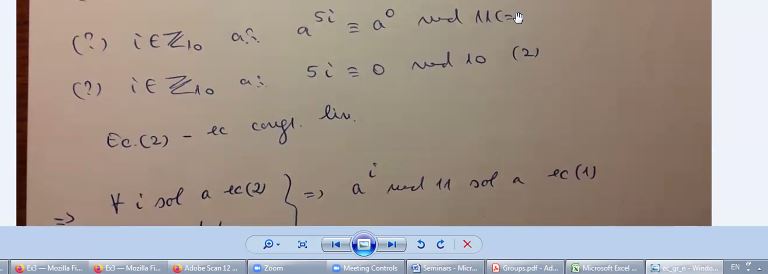 (?) i ∈ ℤ₁₀ a.î. a^{5i} ≡ a^0 mod 11 (=)
(?) i ∈ ℤ₁₀ a.î. 5i ≡ 0 mod 10 (2)
Ec. (2) - ec congr. lin.
=> ∀ i sol a ec (2) } => a^i mod 11 sol a ec (1)
Ex3 — Mozilla Fi... Ex3 — Mozilla Fi... Adobe Scan 12 ... Zoom Meeting Controls Seminars - Micr... Groups.pdf - Ad... Microsoft Excel ... ec_gr_n - Windo... EN